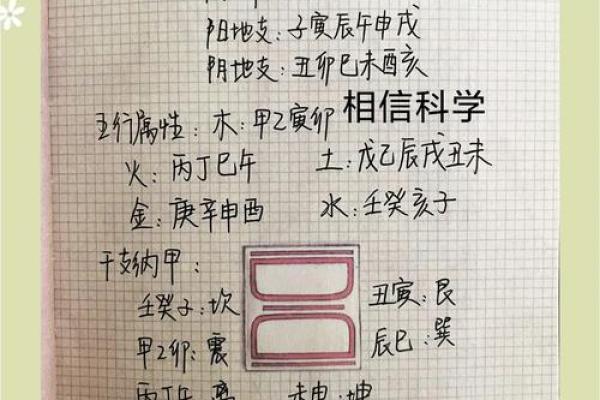 阳地支：子寅辰午申戌
阴地支：丑卯巳未酉亥
五行属性：木：甲乙寅卯
相信科学
火：丙丁巳午 土：戊己辰戌丑未
金：庚辛申酉 水：壬癸亥子
干支纳甲：
壬癸子：坎 丑寅：艮
甲乙卯：震 辰巳：巽
丙丁午：离 未申：坤